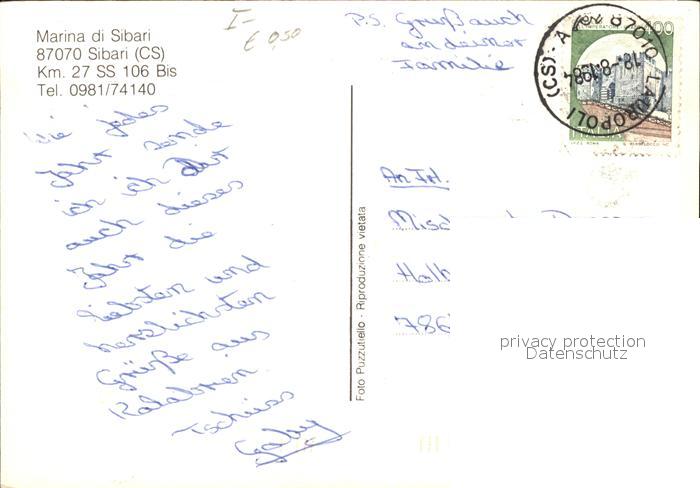 Marina di Sibari
87070 Sibari (CS)
Km. 27 SS 106 Bis
Tel. 0981/74140
I-
€ 0,50
P.S. Grüß auch
an deiner
Familie
400
87010 LAUROPOLI (CS)
18.-8.1984
ITALIA
wie jedes
Jahr sende
ich ich dir
auch dieses
Jahr die
liebsten und
herzlichsten
Grüße aus
Kalabrien.
Tschüss
Gaby
Foto Puzzutiello - Riproduzione vietata
An Frl.
Misc
Halb
786
privacy protection
Datenschutz